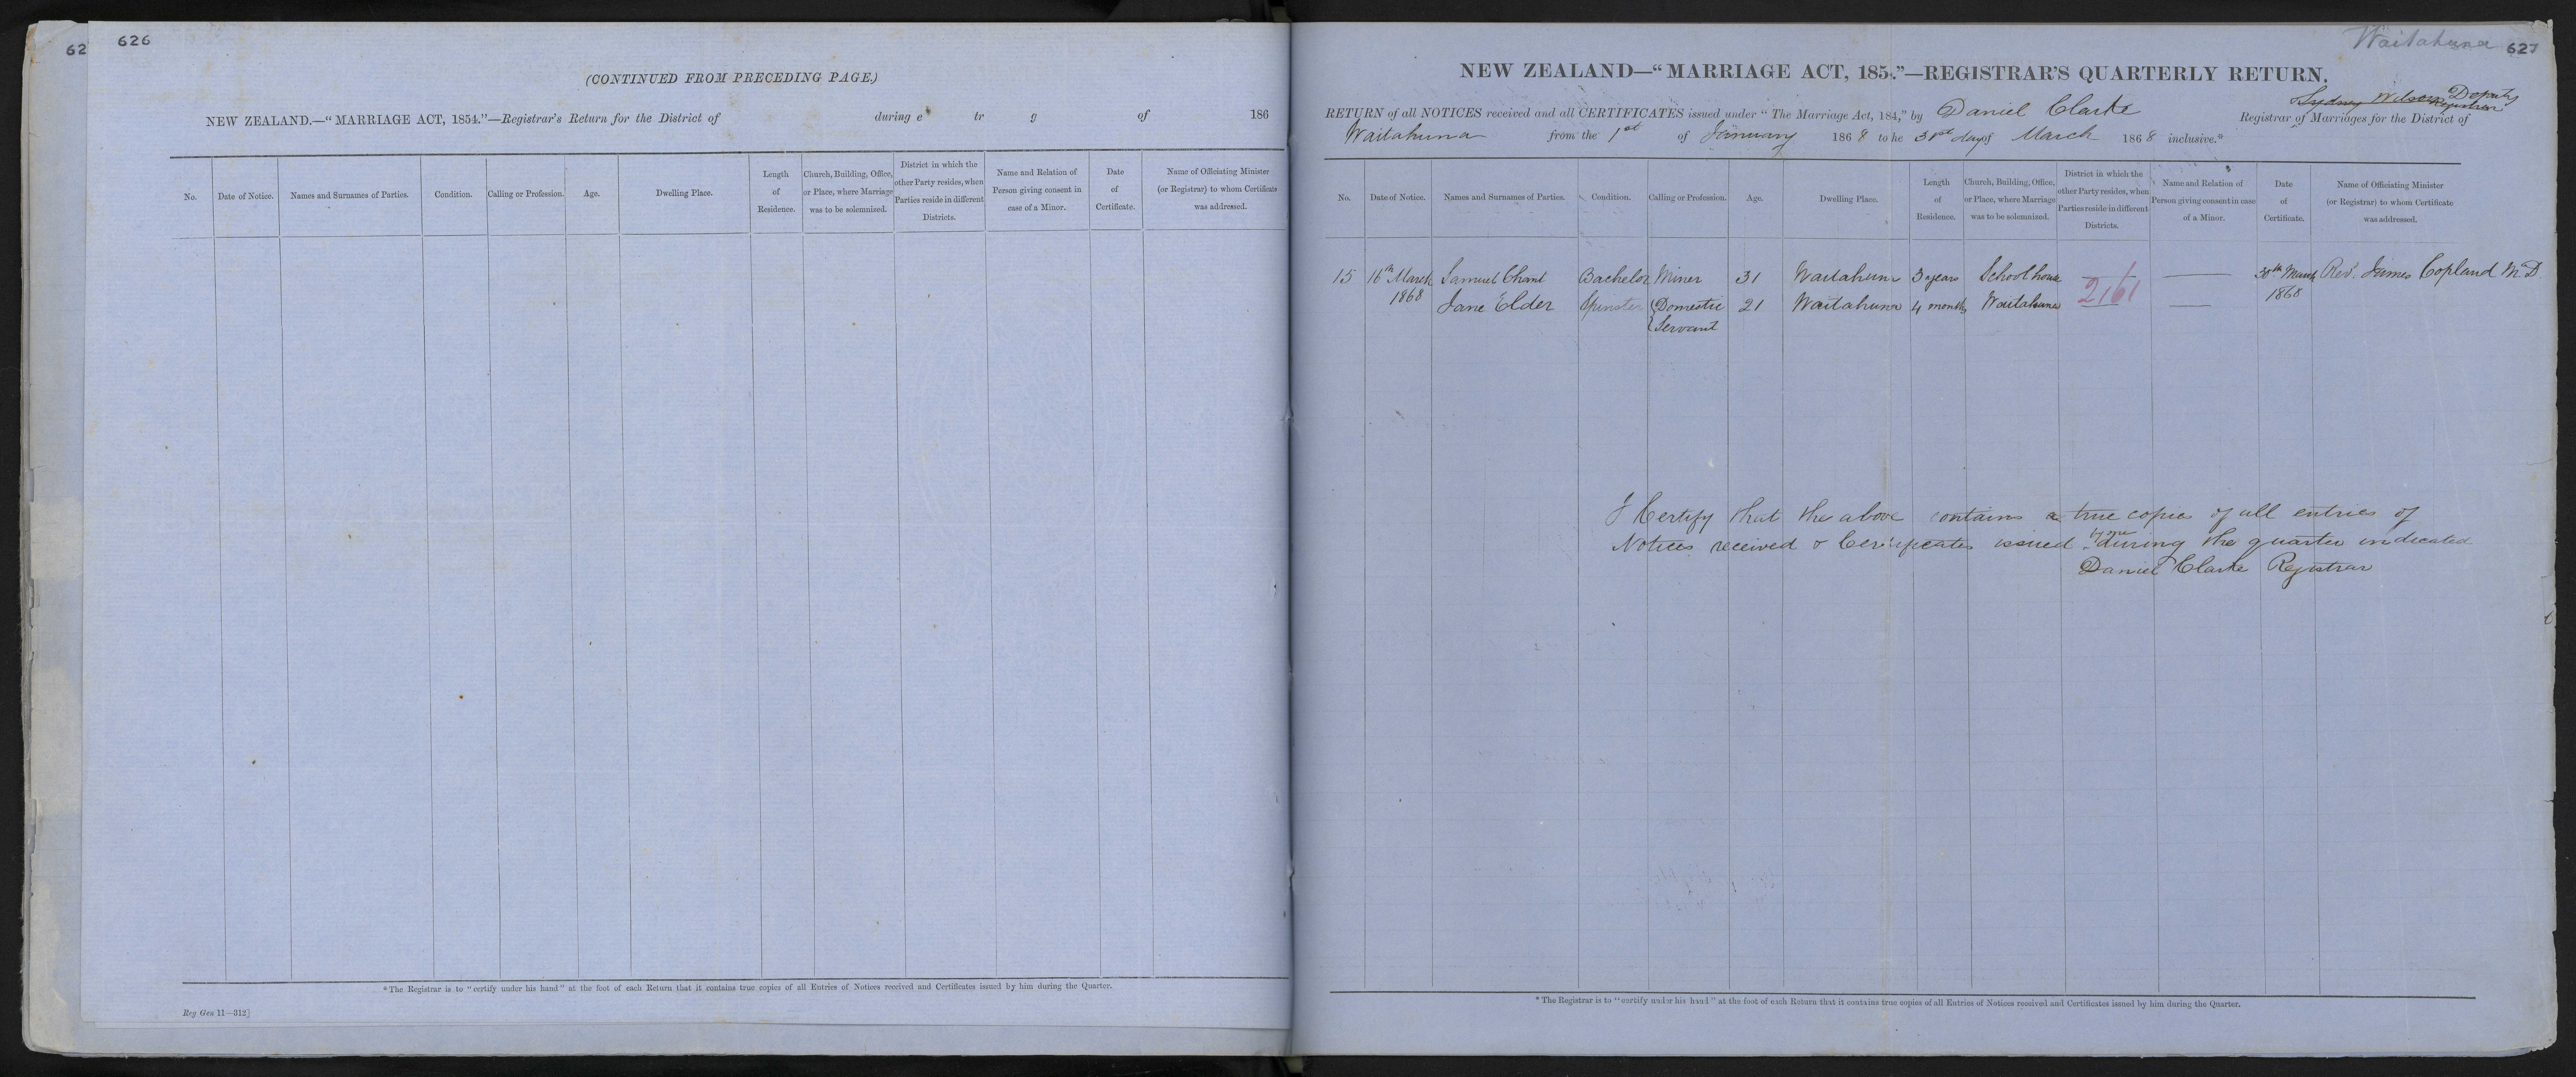 62
626
(CONTINUED FROM PRECEDING PAGE.)
NEW ZEALAND.—"MARRIAGE ACT, 1854."—Registrar's Return for the District of during e tr g of 186
No. Date of Notice. Names and Surnames of Parties. Condition. Calling or Profession. Age. Dwelling Place. Length of Residence. Church, Building, Office, or Place, where Marriage was to be solemnized. District in which the other Party resides, when Parties reside in different Districts. Name and Relation of Person giving consent in case of a Minor. Date of Certificate. Name of Officiating Minister (or Registrar) to whom Certificate was addressed.
*The Registrar is to "certify under his hand" at the foot of each Return that it contains true copies of all Entries of Notices received and Certificates issued by him during the Quarter.
Reg Gen 11—312]
Waitahuna 627
NEW ZEALAND—"MARRIAGE ACT, 185."—REGISTRAR'S QUARTERLY RETURN.
Sydney Wilson Deputy Registrar
RETURN of all NOTICES received and all CERTIFICATES issued under "The Marriage Act, 184," by Daniel Clarke Registrar of Marriages for the District of
Waitahuna from the 1st of January 1868 to he 31st day of March 1868 inclusive.*
No. Date of Notice. Names and Surnames of Parties. Condition. Calling or Profession. Age. Dwelling Place. Length of Residence. Church, Building, Office, or Place, where Marriage was to be solemnized. District in which the other Party resides, when Parties reside in different Districts. Name and Relation of Person giving consent in case of a Minor. Date of Certificate. Name of Officiating Minister (or Registrar) to whom Certificate was addressed.
15 16th March Samuel Chant Bachelor Miner 31 Waitahuna 3 years School house 30th March Rev. James Copland M.D
1868 Jane Elder Spinster Domestic 21 Waitahuna 4 months Waitahuna 2161 1868
Servant
I Certify that the above contains a true copies of all entries of
Notices received & Certificates issued by me during the quarter indicated
Daniel Clarke Registrar
*The Registrar is to "certify under his hand" at the foot of each Return that it contains true copies of all Entries of Notices received and Certificates issued by him during the Quarter.